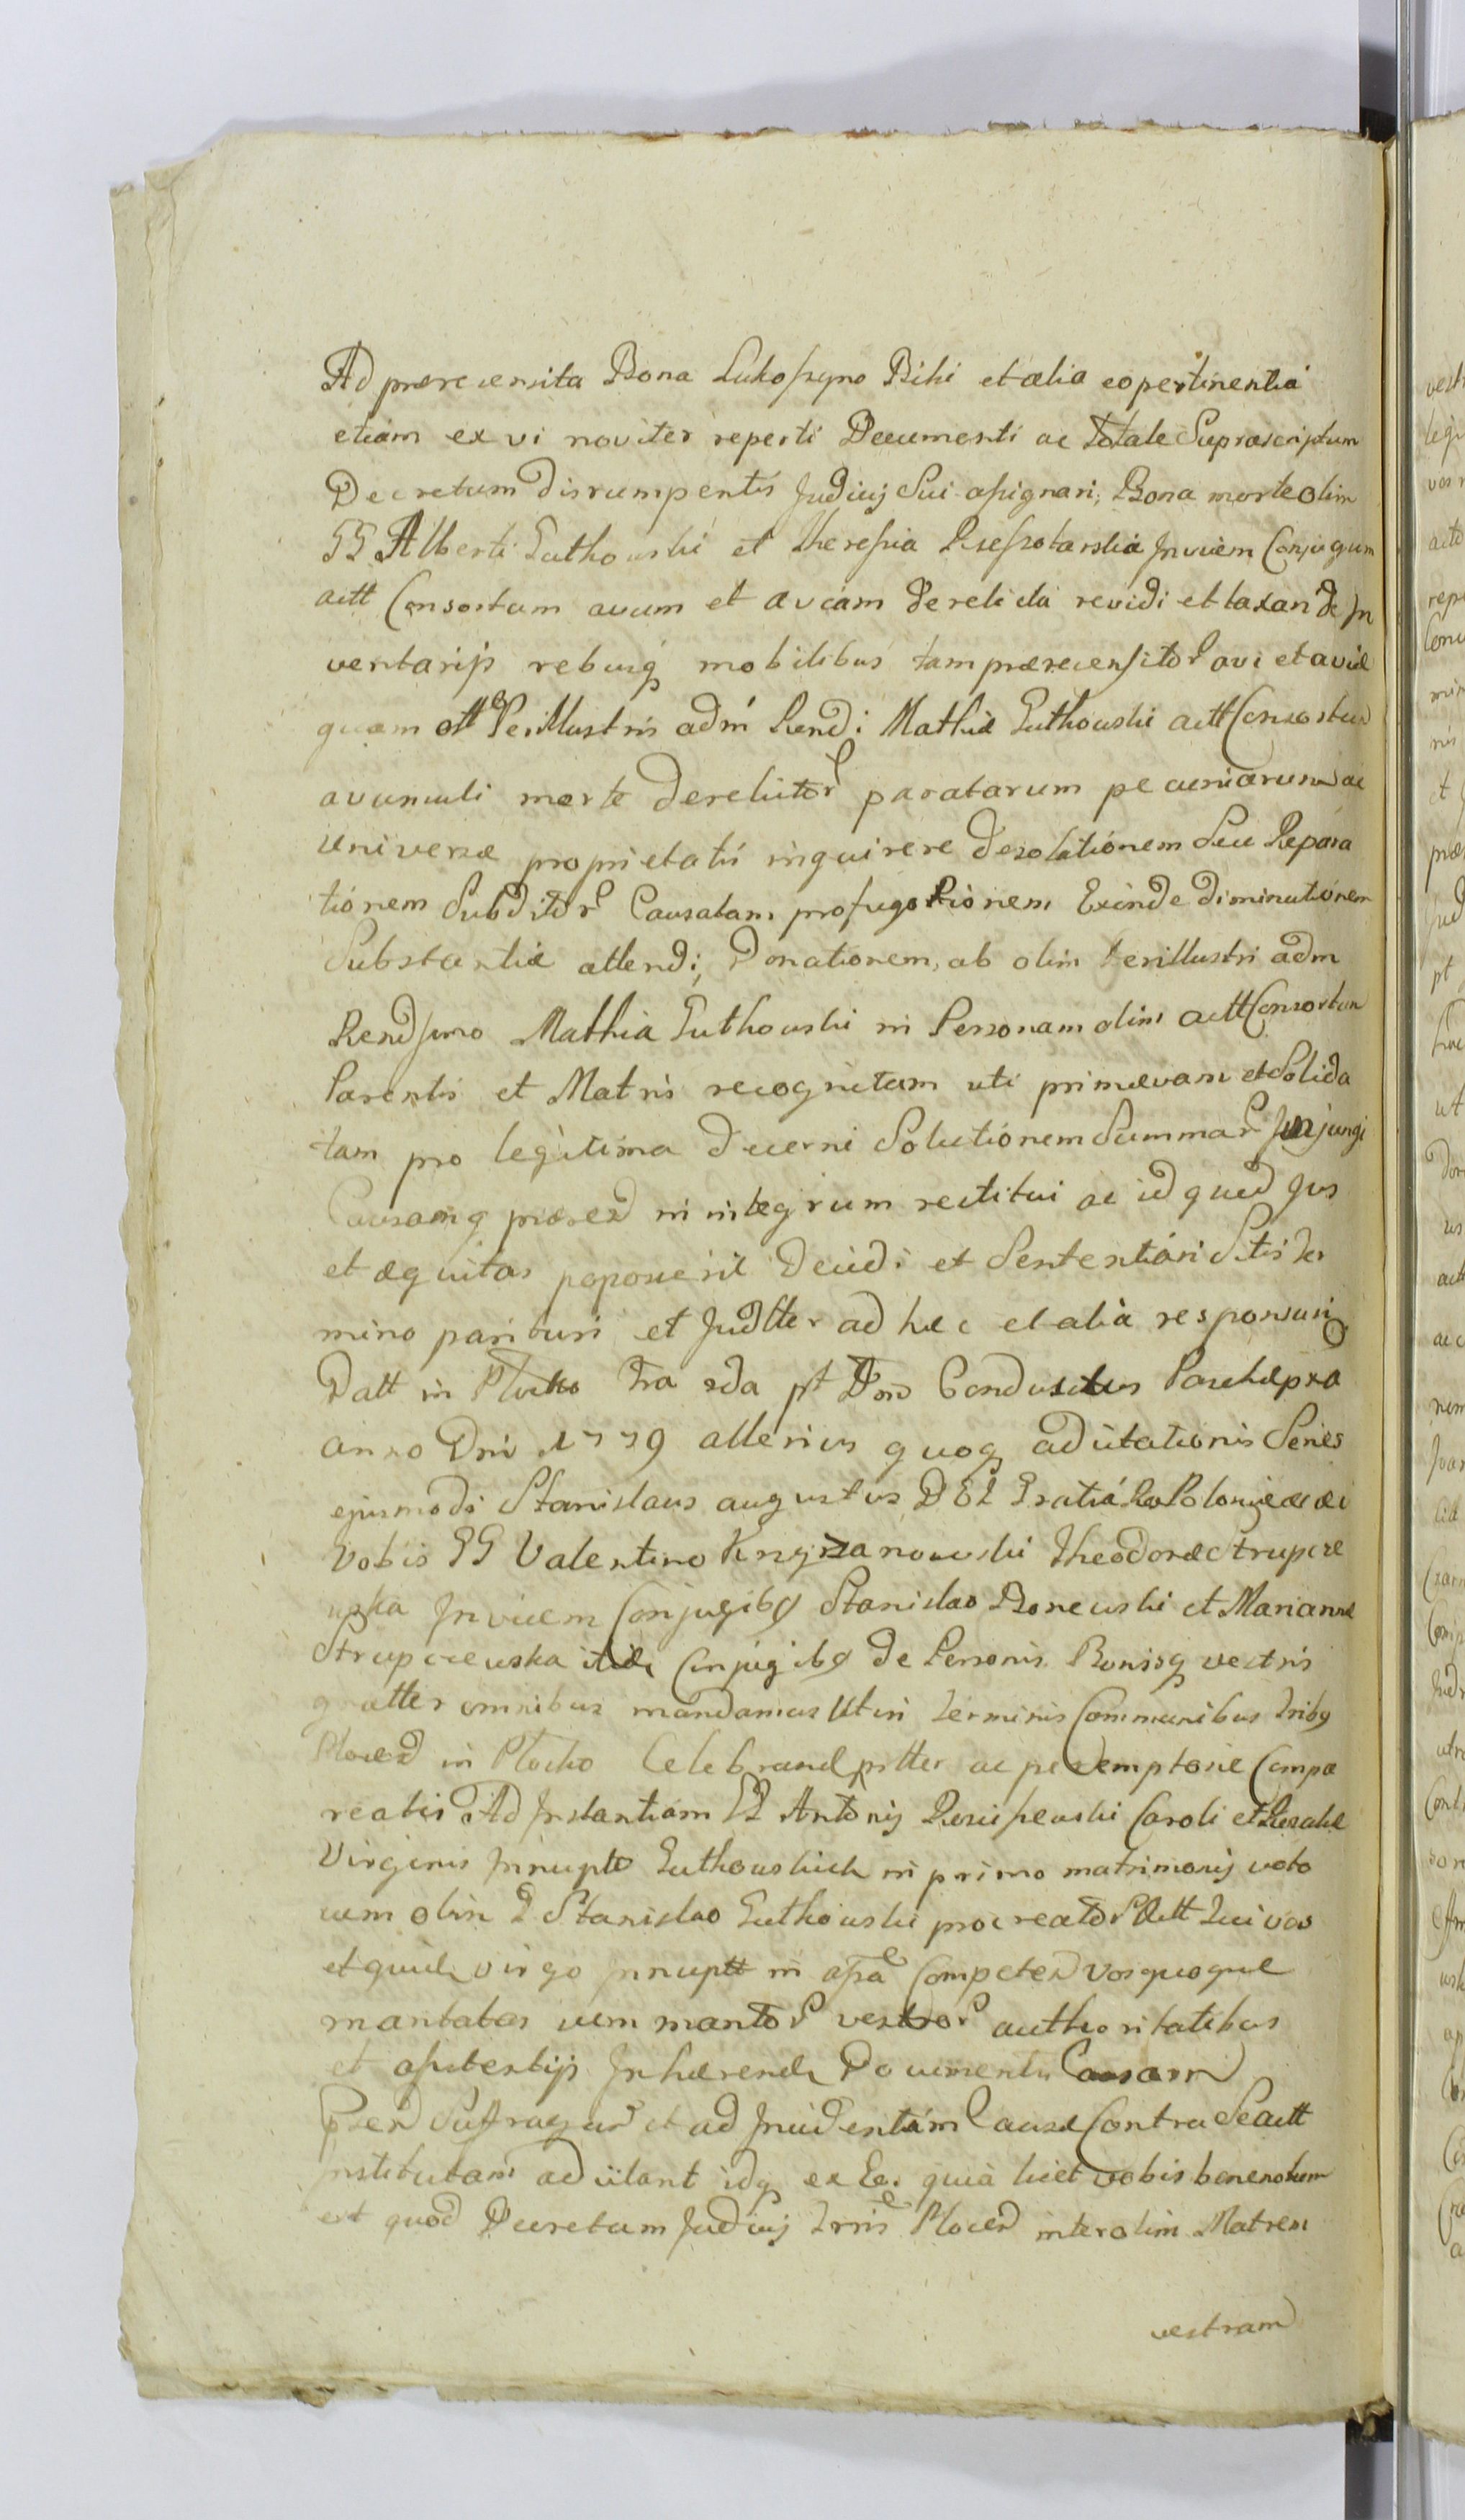 Ad prærecensita Bona Lukoszyno Biki et alia eo pertinentia
etiam ex vi noviter reperti Documenti ac totale Suprascriptum
Decretum disrumpentis Judicij Sui assignari, Bona morte olim
GG Alberti Gutkowski et Theressia Jnvicem Conjugum
actt Consortum avum et aviam derelicta revidi et taxari de Jn
ventarijs rebusq mobilibus tam prærecensitor avi et aviæ
quam Perillustris adm Rendi Mathiæ Gutkowski actt Consortum
avunculi morte derelictor paratarum pecuniarum ac
universæ proprietatis inquirere desolationem Seu Repara
tionem Subditor Causatam profugationem Exinde diminutionem
Substantiæ attendi, Donationem, ab olim Perillustri adm
Rendssimo Mathia Gutkowski in Personam olim actt Consortum
Parentis et Matris recognitam uti primævam et Solida
tam pro legitima decerni Solutionem Summar Jnjungi
Causamq præred in integrum restitui ac id quod Jus
et æquitas poposcerit decidi et Sententiari Stis ter
mino parituri et Judltter ad hæc et alia responsuri
Datt in Płocko fra 2da pt Dom Conductus Paschæ pxa
anno Dni 1779 alterius quoq adcitationis Series
ejusmodi Stanislaus augustus DEI Gratiá Rex Poloniæ ac ac
Vobis GG Valentino Krzyzanowski Theodoræ Strupcze
wska Jnvicem Conjugibq Stanislao Bonewski et Mariannæ
Strupczewska itide Conjugibq de Personis Bonisq vestris
gnaltter omnibus mandamus Ut in terminis Communibus tribq
Plocen in Płocko Celebrand pntter ac peremptorie Compa
reatis Ad Jnstantiam GG Antonij Caroli et Rosaliæ
Virginis Jnnupta Gutkowskich in primo matrimonij voto
cum olim G Stanislao Gutkowski procreator Actt Qui vos
et quide virgo Jnnuptt in assa Competen vos quoque
maritatas cum maritor vestror authoritatibus
et assistentijs Jnhærend Documentis Causam
Psen Suffragan et ad Jncidentiam Causæ Contra Se actt
institutam adcitant idq ex Eo. quia licet vobis bene notum
est quod Decretum Judicij Trris Plocen inter olim Matrem
vestram